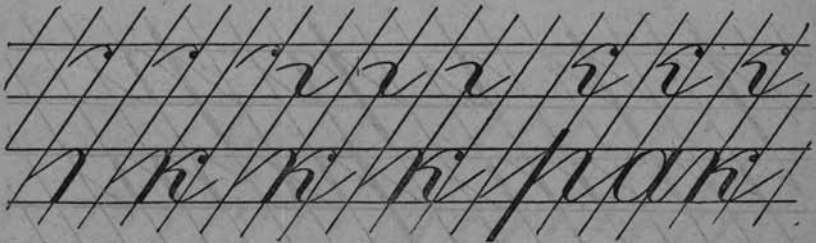 к к к рак